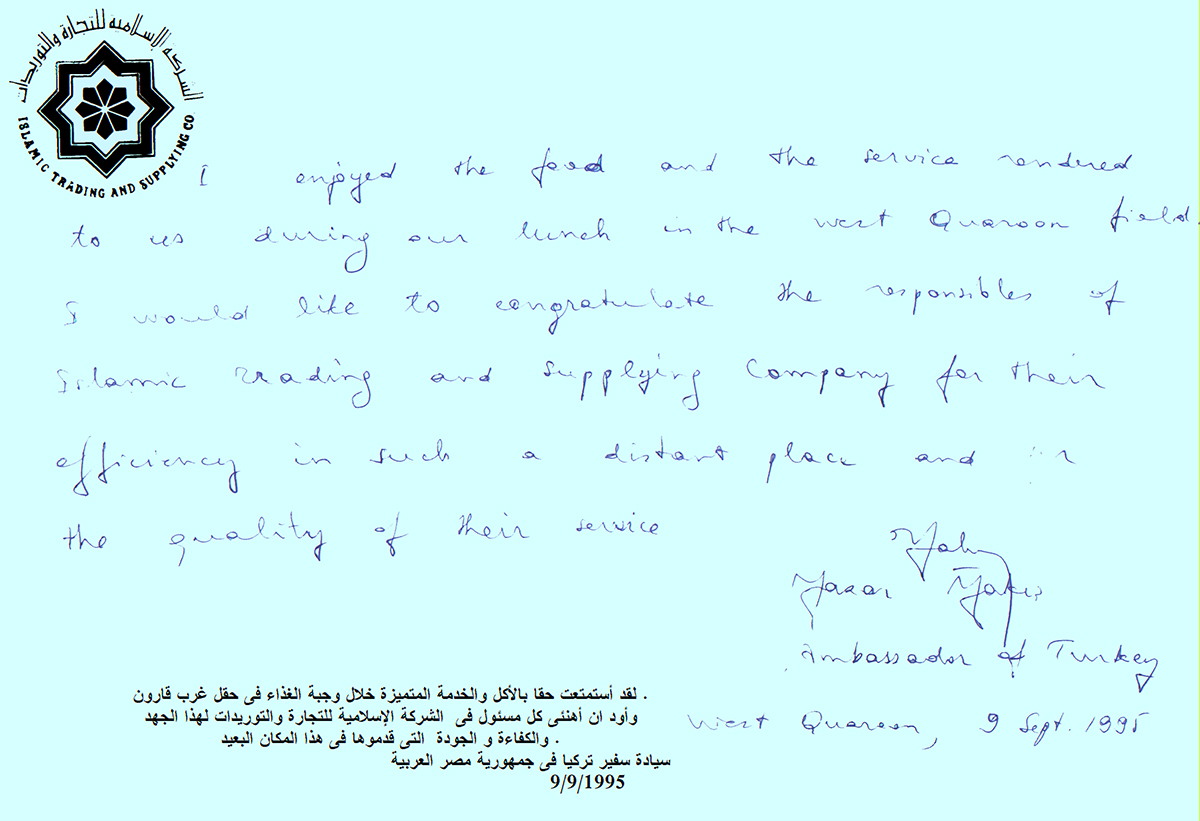 الشركة الإسلامية للتجارة والتوريدات
ISLAMIC TRADING AND SUPPLYING CO
I enjoyed the food and the service rendered
to us during our lunch in the west Quaroon field.
I would like to congratulate the responsibles of
Islamic Trading and Supplying Company for their
efficiency in such a distant place and
the quality of their service
Yaşar Yakış
Ambassador of Turkey
West Quaroon, 9 Sept. 1995
. لقد أستمتعت حقا بالأكل والخدمة المتميزة خلال وجبة الغذاء فى حقل غرب قارون
وأود ان أهنئى كل مسئول فى الشركة الإسلامية للتجارة والتوريدات لهذا الجهد
. والكفاءة و الجودة التى قدموها فى هذا المكان البعيد
سيادة سفير تركيا فى جمهورية مصر العربية
9/9/1995